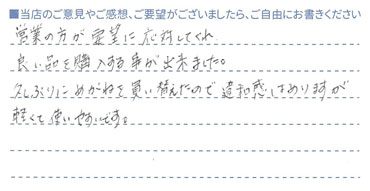 ■当店のご意見やご感想、ご要望がございましたら、ご自由にお書きください
営業の方が要望に応対してくれ
良い品を購入する事が出来ました。
久しぶりにめがねを買い替えたので違和感はありますが
軽くて使いやすいです。